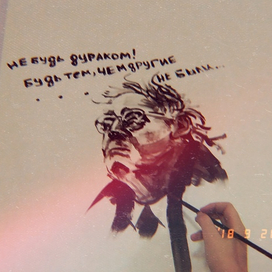 НЕ БУДЬ ДУРАКОМ!
БУДЬ ТЕМ, ЧЕМ ДРУГИЕ
. . . НЕ БЫЛИ...
'18 9 2